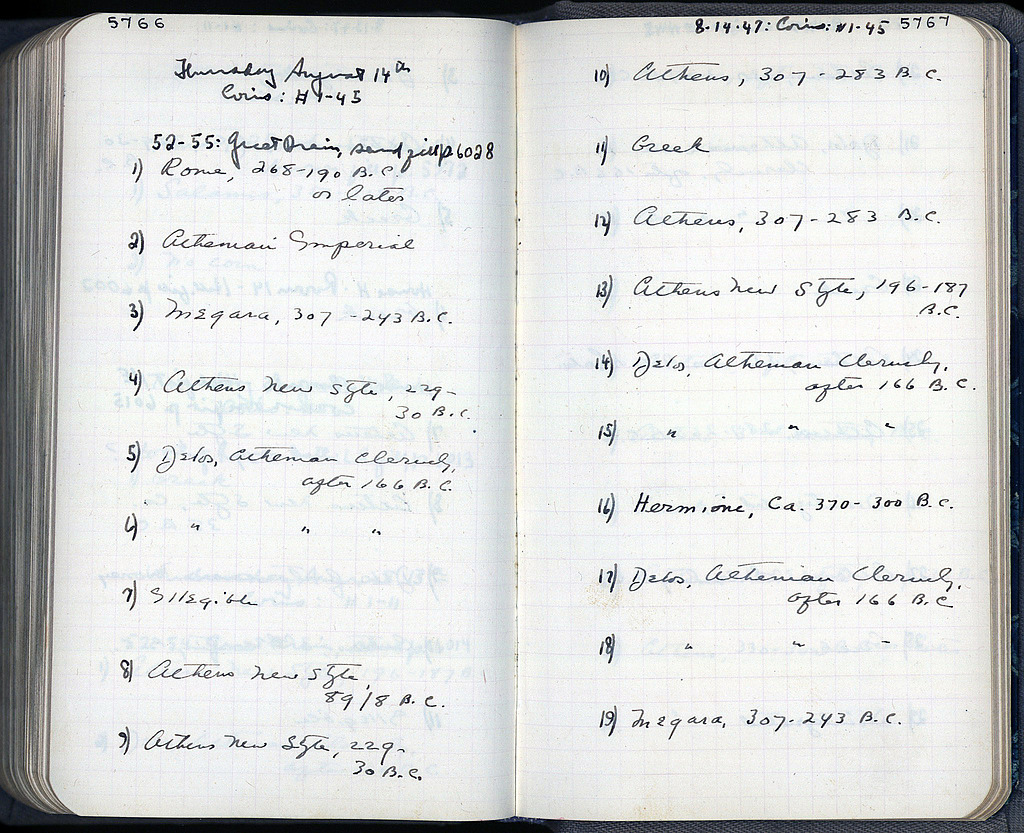 5766
Thursday August 14th
Coins: #1-45
52-55: Great Drain, sand fill p6028
1) Rome, 268-190 B.C.
or later
2) Athenian Imperial
3) Megara, 307-243 B.C.
4) Athens New Style, 229-
30 B.C.
5) Delos, Athenian Cleruchy,
after 166 B.C.
6) " " "
7) Illegible
8) Athens New Style,
89/8 B.C.
9) Athens New Style, 229-
30 B.C.
8-14-47: Coins: #1-45 5767
10) Athens, 307-283 B.C.
11) Greek
12) Athens, 307-283 B.C.
13) Athens New Style, 196-187
B.C.
14) Delos, Athenian Cleruchy,
after 166 B.C.
15) " " "
16) Hermione, Ca. 370-300 B.C.
17) Delos, Athenian Cleruchy,
after 166 B.C.
18) " " "
19) Megara, 307-243 B.C.